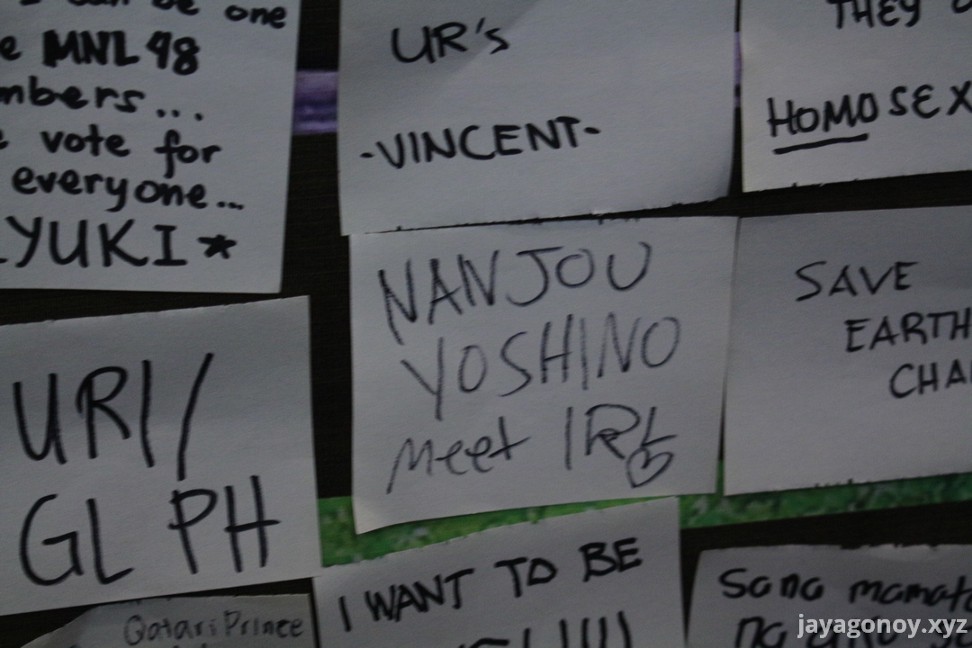 can be one
MNL48
mbers...
vote for
everyone...
YUKI*
UR's
-VINCENT-
THEY
HOMOSEX
NANJOU
YOSHINO
meet IRL
SAVE
EARTH
CHA
URI/
GL PH
Qatari Prince
I WANT TO BE
Sana mamat
jayagonoy.xyz